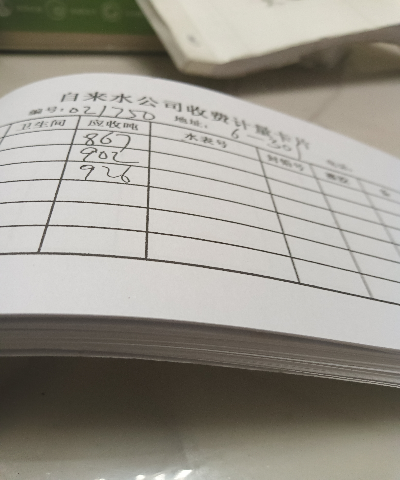 自来水公司收费计量卡片
编号:021750 地址: 6-301
卫生间 应收吨 水表号 封铅号
867
902
926